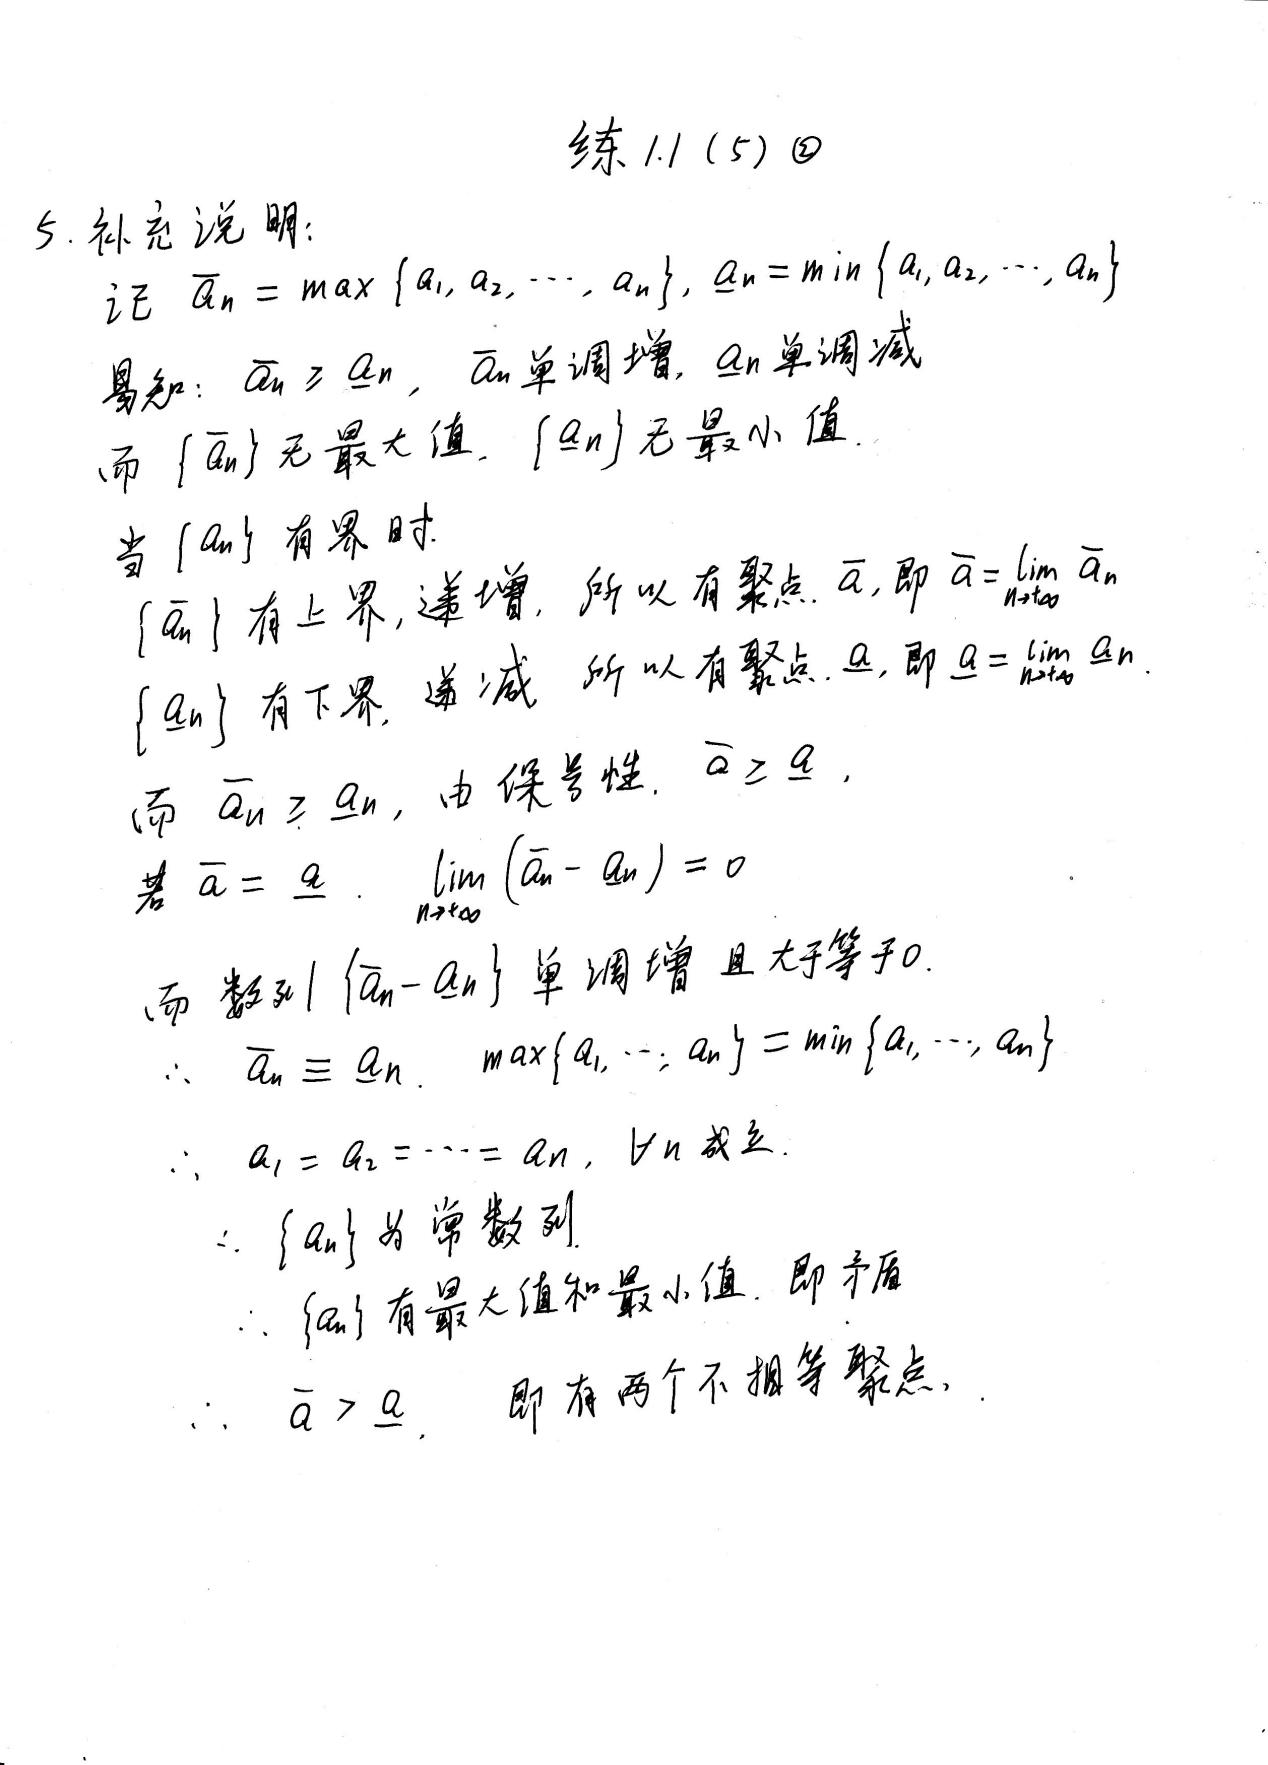 练1.1(5)②
5. 补充说明:
记 a̅n = max{a₁, a₂, ⋯, an}, a̲n = min{a₁, a₂, ⋯, an}
易知: a̅n ≥ a̲n, a̅n 单调增, a̲n 单调减
而 {a̅n} 无最大值. {a̲n} 无最小值.
当 {an} 有界时.
{a̅n} 有上界, 递增, 所以有聚点. a̅, 即 a̅ = lim n→+∞ a̅n
{a̲n} 有下界, 递减 所以有聚点. a̲, 即 a̲ = lim n→+∞ a̲n.
而 a̅n ≥ a̲n, 由保号性. a̅ ≥ a̲,
若 a̅ = a̲. lim n→+∞ (a̅n − a̲n) = 0
而数列 {a̅n − a̲n} 单调增 且大于等于0.
∴ a̅n ≡ a̲n. max{a₁, ⋯, an} = min{a₁, ⋯, an}
∴ a₁ = a₂ = ⋯ = an, ∀n 成立.
∴ {an} 为常数列.
∴ {an} 有最大值和最小值. 即矛盾
∴ a̅ > a̲. 即有两个不相等聚点.